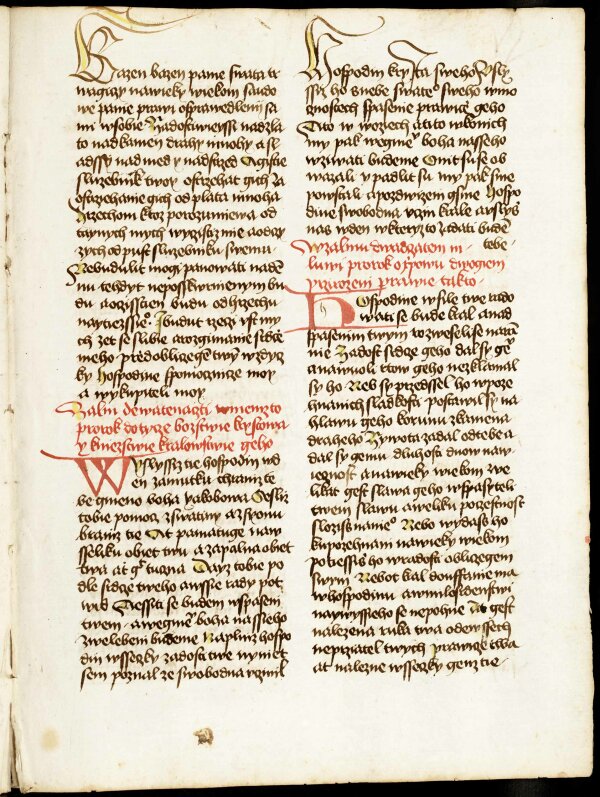 Bazen bazen panie swata tr
wagizy nawieky wiekom saudo
we panie prawi osprawedleni sa
mi wsobie Zadostiweyssi nadzla
to nadkamen drahy mnohy a sl
adssy nadmed y nadstred
sluzebnik twoy ostrzehat gich
ostrzehanie gich odplata mnoha
Hrzechom ktoz porozumiewa od
taynych mych wyczist mie aodcy
zych odpust sluzebniku swemu
Nebudulit mogi panowati nade
mu tehdyt neposkwrnienym bu
du aoczisscen budu odhrzechu
nayvieczssie Ibudut rzeczi vst my
ch zet se slibie arozgimanie srdce
meho predobliczegem twym wzdycz
ky Hospodine spomocznicze moy
a wykupiteli moy
Zalm dewatenazti wniemzto
prorok dotycze bozstwie krystowa
y kniezstwie kralowstwie geho
Wyslyssiz tie hospodin wd
en zamutku chraniz te
be gmeno boha yakobowa Sesliz
tobie pomocz zswatiny azsyonu
braniz tie At pamatuge naw
sseliku obiet twu a zapalna obiet
twa at gest tuczna Dayz tobie po
dle srdcze tweho awssie rady pot
wrd Wessiti se budem wspasem
twem awegmene boha nassieho
zwelebeni budeme Naplniz hospo
din wsseczky zadosti twe nynie gt
sem poznal ze swobodna vczinil
Hospodin krysta sweho Vslys
ssy ho snebe swateho sweho wmo
gnostech spasenie prawicze geho
Tito w woziech atito wkonich
my pak wegmene boha nasseho
wzywati budeme Oni su se ob
wazali y padli su my pak sme
powstali apozdwizeni gsme Hospo
dine swobodna vczin krale avslyss
nas wden wkteryzto zadati budem
tebe
Wzalmu dwadczatem m
luwi prorok
przirozeni prawie takto
Hospodine wsile twe rado
wati se bude kral anad
spasenim twym wzweseli se naram
nie Zadost srdcze geho dal sy gemu
anawuoli rtow geho nezklamal
sy ho Neb sy przedssel ho wpoze
hnanich sladkosti postawil sy na
hlawu geho korunu zkamena
draheho Zywota zadal odtebe a
dal sy gemu dluhost dnow naw
iecznost anawieky wiekom zwe
likat gest slawa geho wspasyteli
twem slawu aweliku poczestnost
slozis nanie Nebo wydass ho
kupozehnani nawieky wiekom
potiessis ho wradosti obliczegem
swym Nebot kral doufanie ma
whospodinu awmilosrdenstwi
naywyssieho se nepohne At gest
nalezena ruka twa odewssech
nepriatel twych prawicze twa
at nalezne wsseczky genz tie